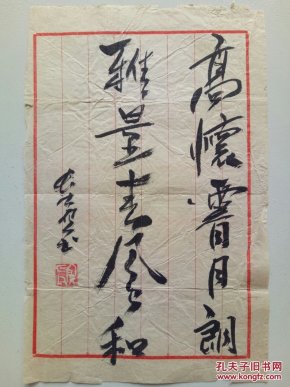 高懷霽月朗
雅量春風和
孔夫子旧书网
www.kongfz.com